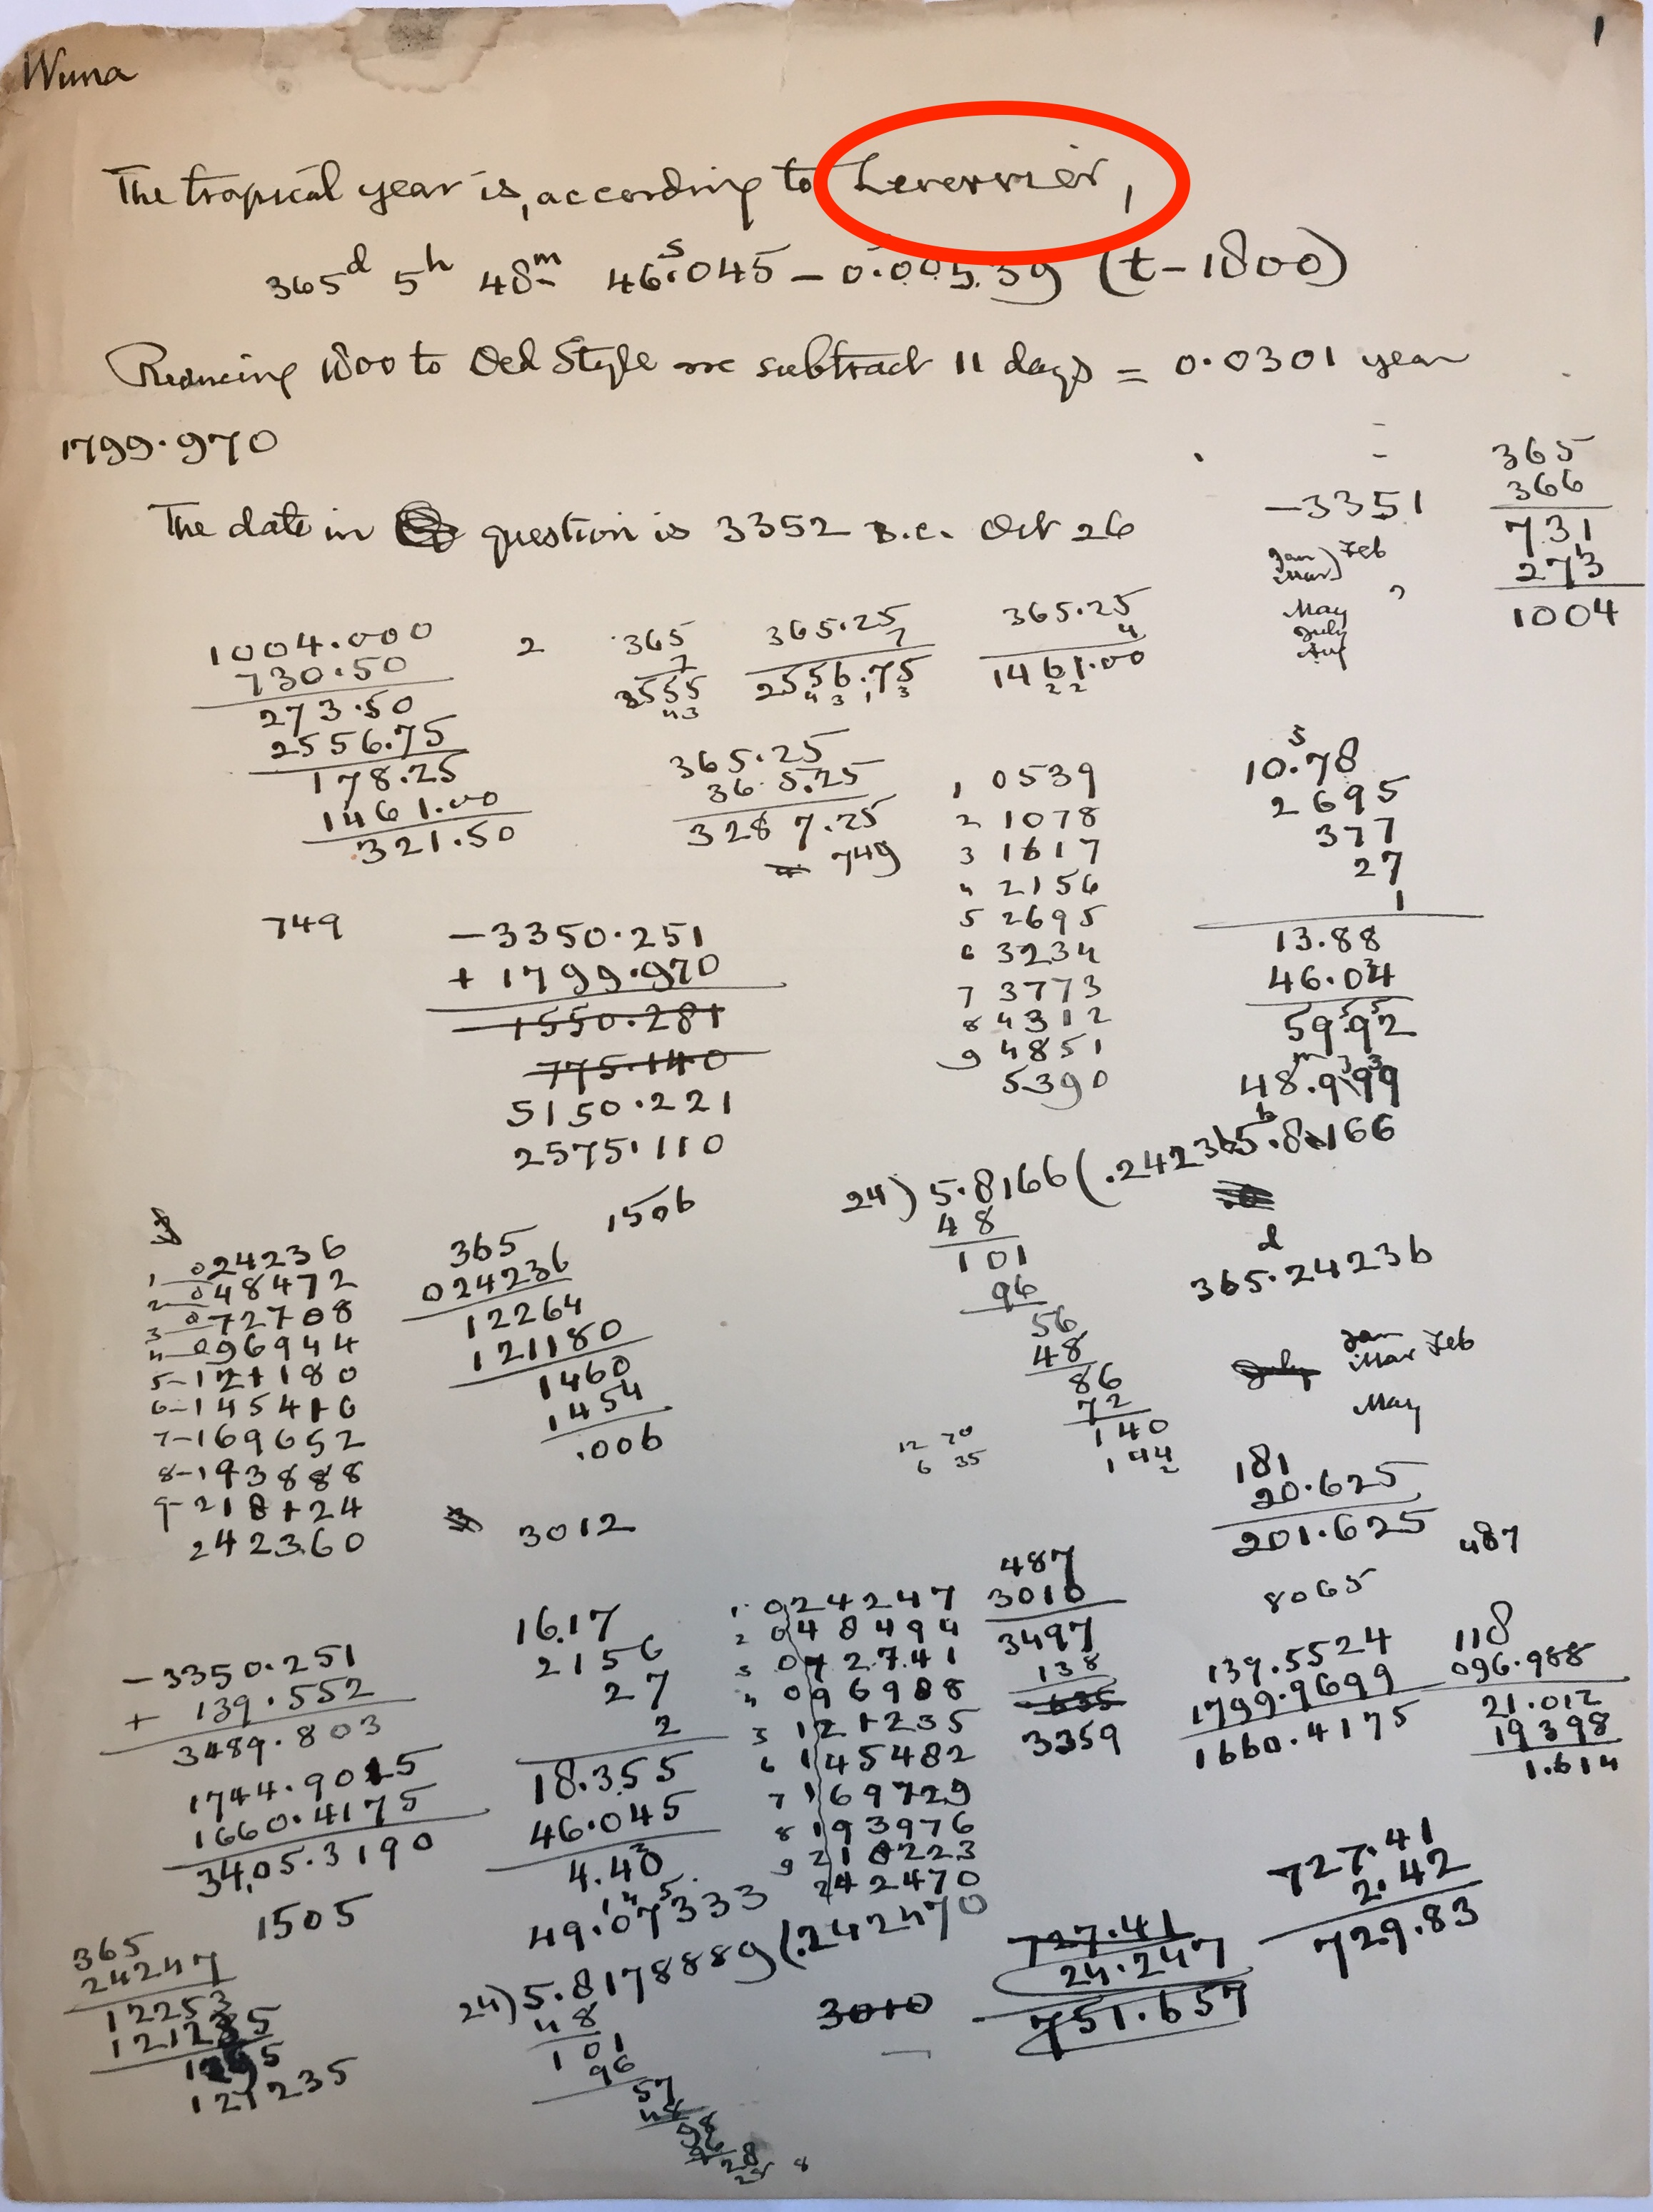 1
Wuna
The tropical year is, according to Leverrier,
365d 5h 48m 46s.045 – 0s.00539 (t – 1800)
Reducing 1800 to Old Style we subtract 11 days = 0.0301 year
1799.970
The date in question is 3352 B.C. Oct 26
-3351
Jan) Feb
Mar)
May
July
Aug
365
366
731
273
1004
1004.000
730.50
273.50
2556.75
178.25
1461.00
321.50
2
365
7
2555
43
365.25
7
2556.75
365.25
4
1461.00
22
365.25
365.25
3287.25
749
1 0539
2 1078
3 1617
4 2156
5 2695
6 3234
7 3773
8 4312
9 4851
5390
10.78
2695
377
27
1
13.88
46.04
59.92
749
-3350.251
+ 1799.970
-1550.281
775.140
5150.221
2575.110
24) 5.8166 (.24236
48
101
96
56
48
86
72
140
144
2
365d.24236
Jan
Mar Feb
July
May
181
20.625
201.625
487
8065
1 024236
2 048472
3 072708
4 096944
5-121180
6-145416
7-169652
8-193888
9-218124
242360
365
024236
12264
121180
1460
1454
.006
1506
12 70
6 35
3012
-3350.251
+ 139.552
3489.803
1744.9015
1660.4175
34,05.3190
1505
16.17
2156
27
2
18.355
46.045
4.40
49.07333
1 024247
2 048494
3 072741
4 096988
5 121235
6 145482
7 169729
8 193976
9 218223
242470
487
3010
3497
138
3359
139.5524
1799.9699
1660.4175
118
096.988
21.012
19398
1.614
365
24247
12253
121235
24) 5.8178889 (.242470
48
101
96
57
48
3010
727.41
24.247
751.657
727.41
2.42
729.83